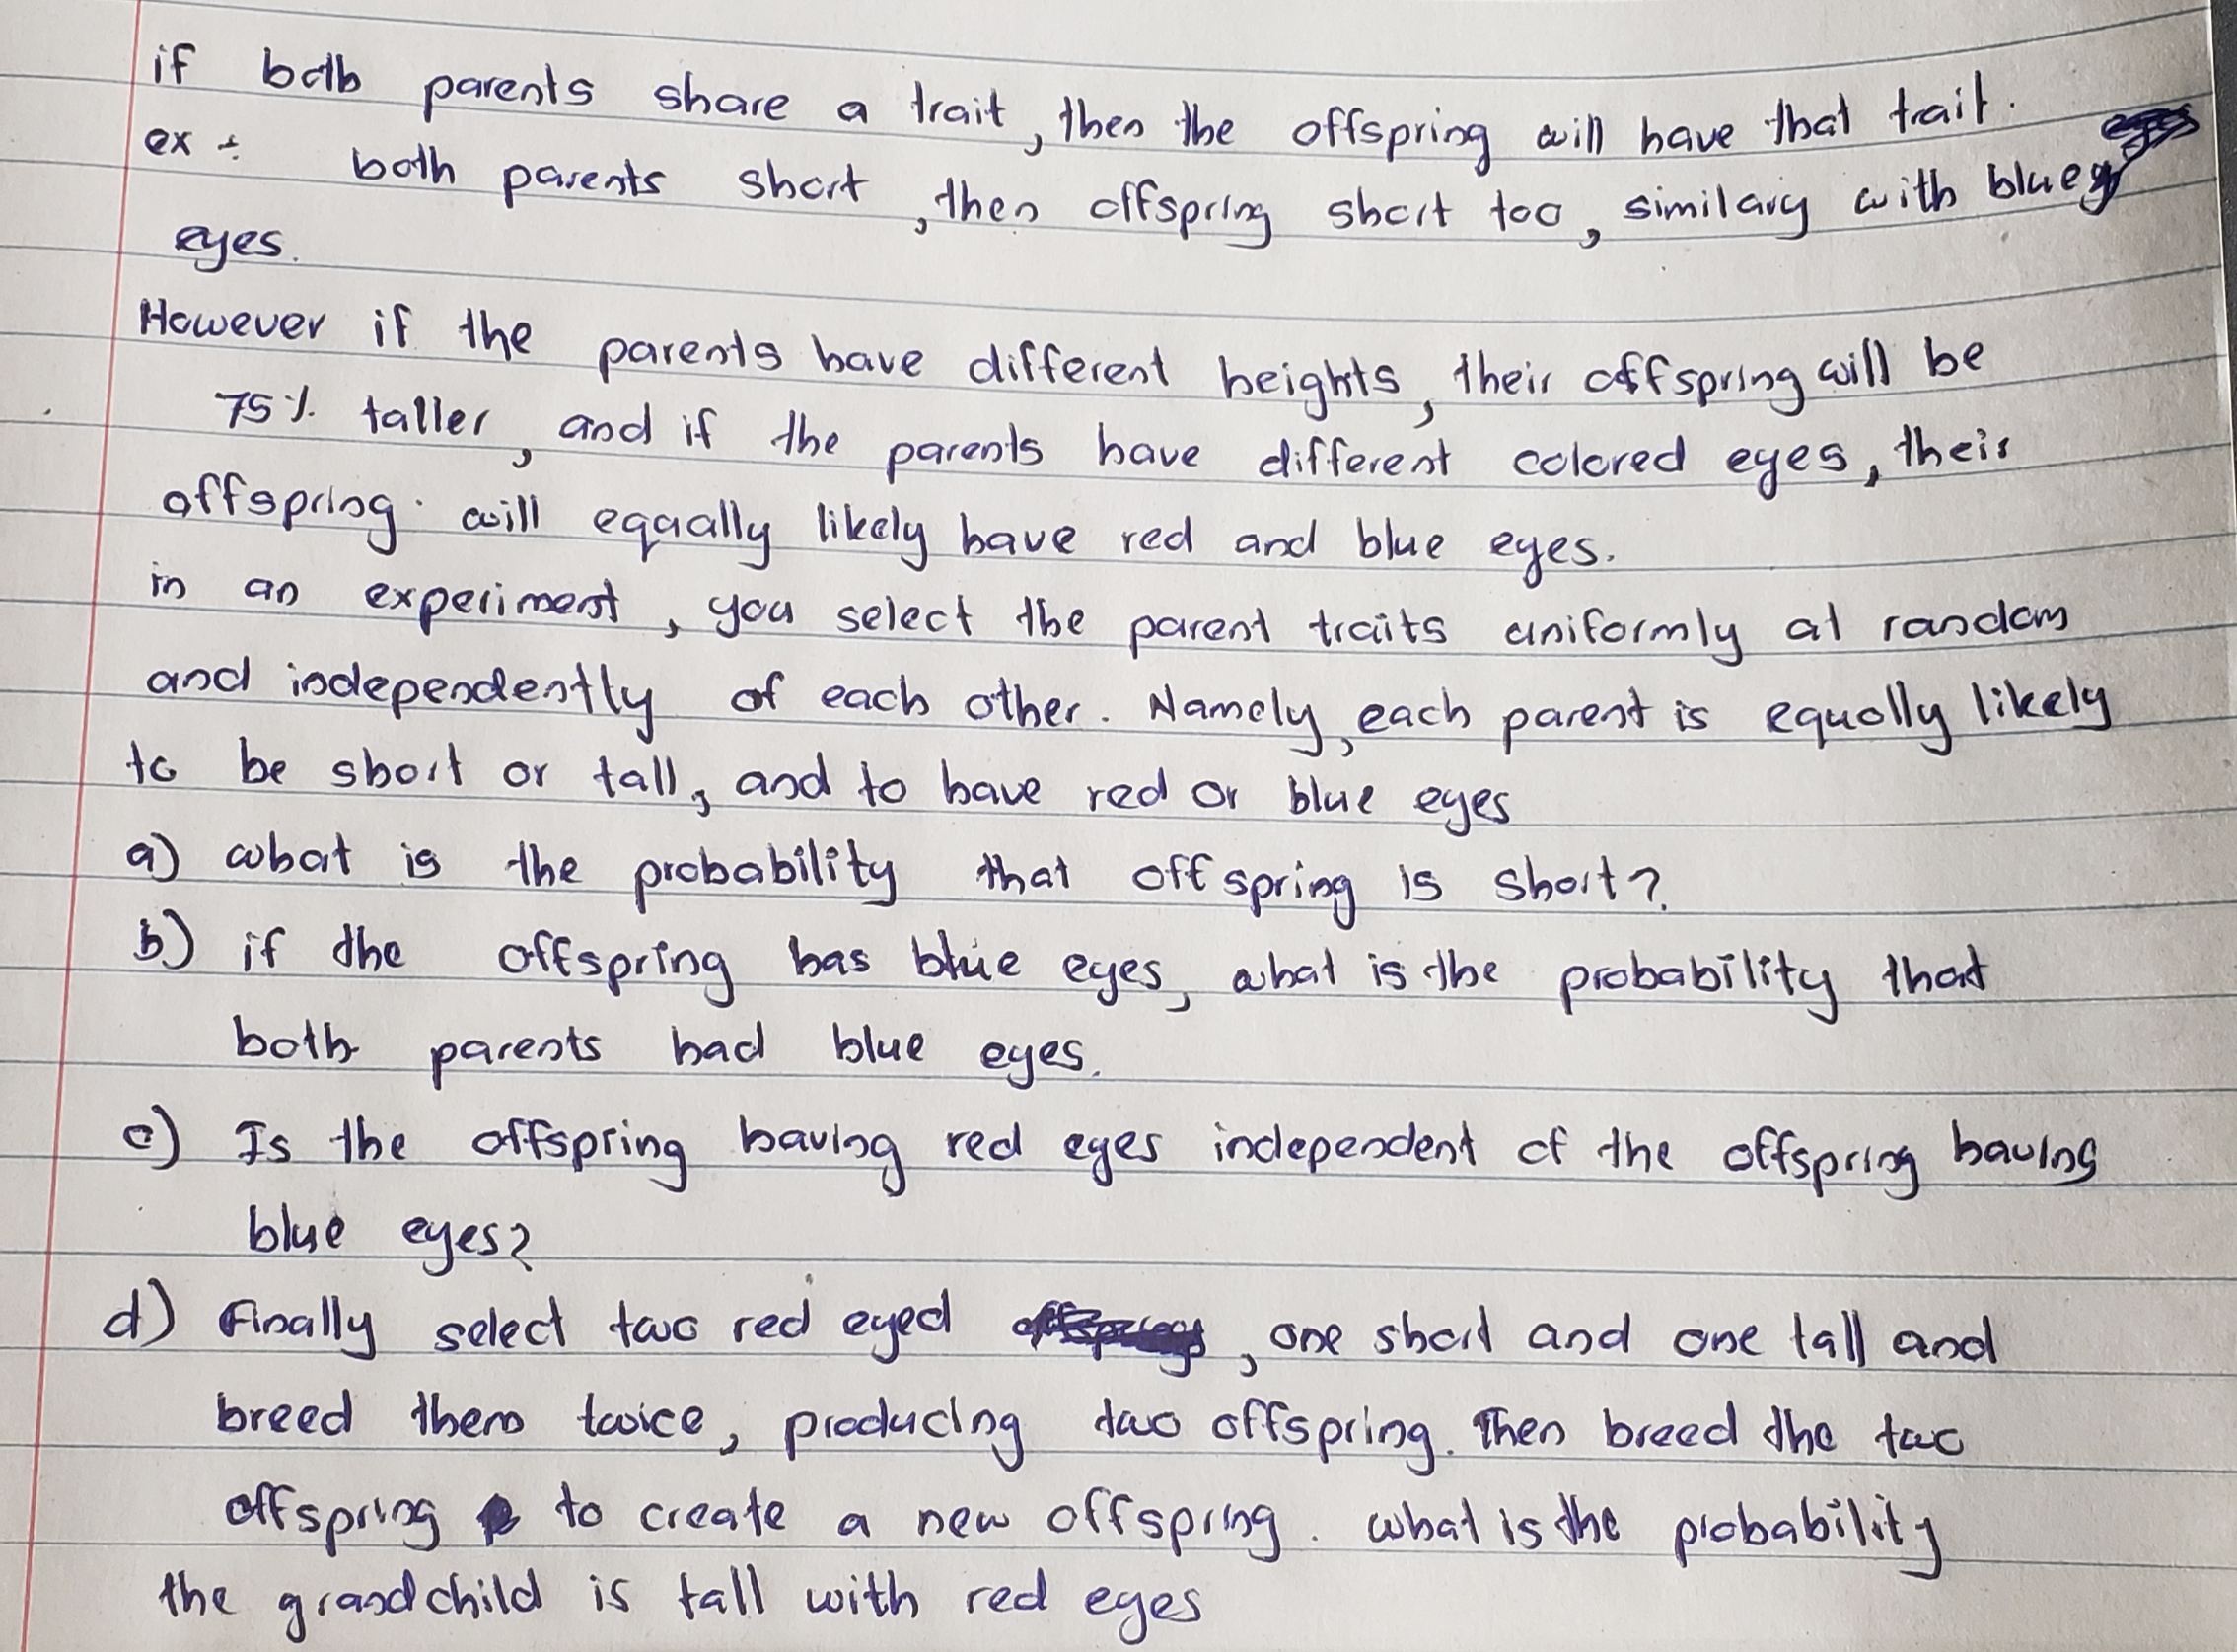 if both parents share a trait, then the offspring will have that trait.
ex : both parents short, then offspring short too, similary with blue
eyes.
However if the parents have different heights, their offspring will be
75% taller, and if the parents have different colored eyes, their
offspring will equally likely have red and blue eyes.
in an experiment, you select the parent traits uniformly at random
and independently of each other. Namely, each parent is equally likely
to be short or tall, and to have red or blue eyes
a) what is the probability that offspring is short?
b) if the offspring has blue eyes, what is the probability that
both parents had blue eyes.
c) Is the offspring having red eyes independent of the offspring having
blue eyes?
d) Finally select two red eyed , one short and one tall and
breed them twice, producing two offspring. Then breed the two
offspring to create a new offspring. what is the probability
the grandchild is tall with red eyes